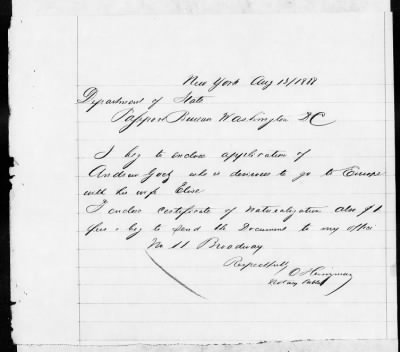 New York Aug 13/1888
Department of State
Passport Bureau Washington DC
I beg to enclose application of
Andrew who is desirous to go to Europe
with his wife Elise
I enclose certificate of naturalization also $1
fee & beg to send the Document to my office
No 11 Broadway
Respectfully
Notary Public